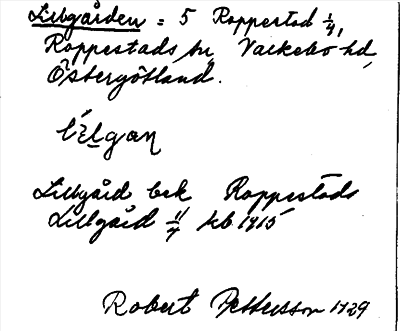 Lillgården = 5 Roppestad 1/4,
Roppestads sn, Valkebo hd,
Östergötland.
Lillgård bek Roppestads
Lillgård 1/4 kb 1915
Robert Pettersson 1929